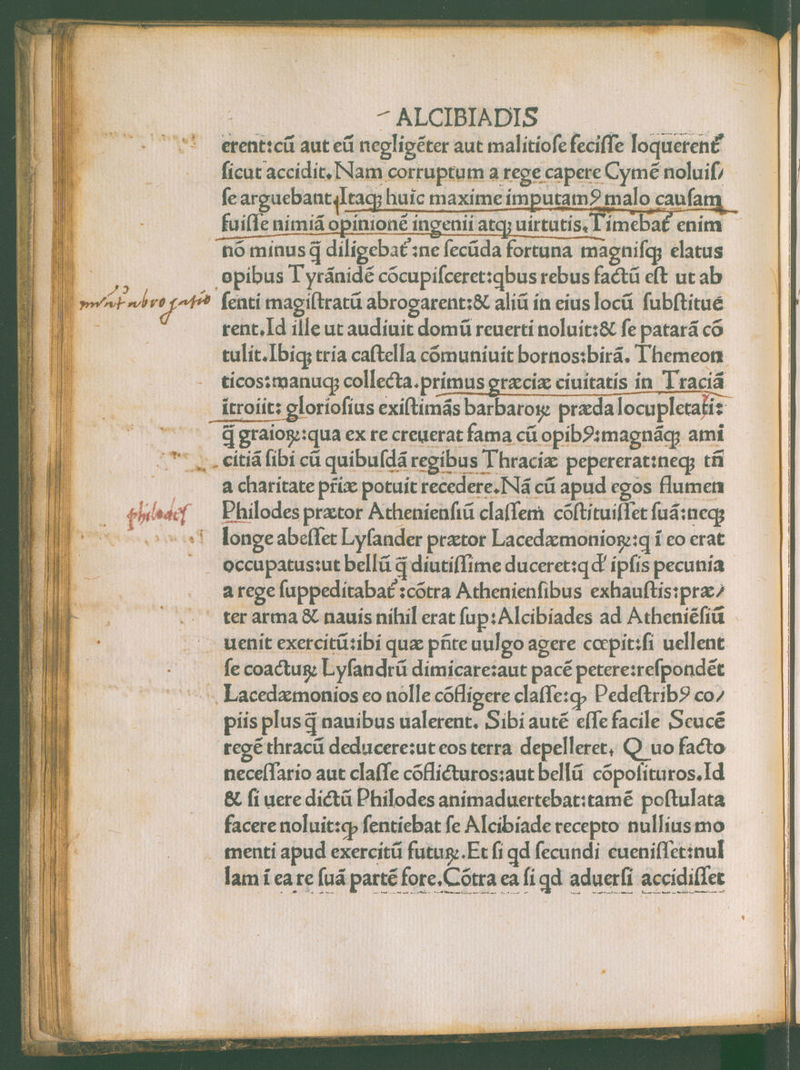 ALCIBIADIS
erent:cũ aut eũ negligẽter aut malitiose feciſſe loquerent᷑
ſicut accidit. Nam corruptum a rege capere Cymẽ noluiſ/
ſe arguebant. Itaq; huic maxime imputamꝰ malo cauſam
fuiſſe nimiã opinionẽ ingenii atq; uirtutis. Timebat᷑ enim
nõ minus q̃ diligebat᷑:ne ſecũda fortuna magniſq; elatus
opibus Tyrãnidẽ cõcupiſceret:qbus rebus factũ eſt ut ab
ſenti magiſtratũ abrogarent:& aliũ in eius locũ ſubſtitue
rent. Id ille ut audiuit domũ reuerti noluit:& ſe patarã cõ
tulit. Ibiq; tria caſtella cõmuniuit bornos:birã. Themeon
ticos:manuq; collecta. primus græciæ ciuitatis in Traciã
ĩtroiit: glorioſius exiſtimãs barbaroꝝ præda locupletari:
q̃ graioꝝ:qua ex re creuerat fama cũ opibꝰ:magnãq; ami
citiã ſibi cũ quibuſdã regibus Thraciæ pepererat:neq; tñ
a charitate přiæ potuit recedere. Nã cũ apud egos flumen
Philodes prætor Athenienſiũ claſſem cõſtituiſſet ſuã:neq;
philocles
longe abeſſet Lyſander prætor Lacedæmonioꝝ:q ĩ eo erat
occupatus:ut bellũ q̃ diutiſſime duceret:q d' ipſis pecunia
a rege ſuppeditabat᷑:cõtra Athenienſibus exhauſtis:præ/
ter arma & nauis nihil erat ſup:Alcibiades ad Atheniẽſiũ
uenit exercitũ:ibi quæ pñte uulgo agere cœpit:ſi uellent
ſe coactuꝝ Lyſandrũ dimicare:aut pacẽ petere:reſpondẽt
Lacedæmonios eo nolle cõfligere claſſe:ꝙ Pedeſtribꝰ co/
piis plus q̃ nauibus ualerent. Sibi autẽ eſſe facile Seucẽ
regẽ thracũ deducere:ut eos terra depelleret, Quo facto
neceſſario aut claſſe cõflicturos:aut bellũ cõpoſituros. Id
& ſi uere dictũ Philodes animaduertebat:tamẽ poſtulata
facere noluit:ꝙ ſentiebat ſe Alcibiade recepto nullius mo
menti apud exercitũ futuꝝ. Et ſi qd ſecundi eueniſſet:nul
lam ĩ ea re ſuã partẽ fore. Cõtra ea ſi qd aduerſi accidiſſet